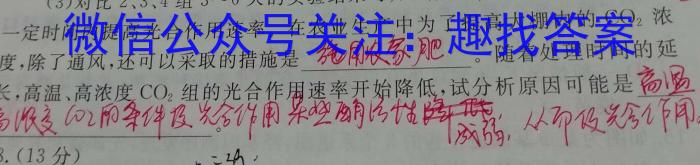 (3)对比2、3、4组3~6天的
一定时间提高光合作用速率。在农业生产中为了提高大棚内的CO₂浓
微信公众号关注：趣找答案
度,除了通风,还可以采取的措施是 施用农家肥 。随着处理时间的延
长,高温、高浓度CO₂组的光合作用速率开始降低,试分析原因可能是 高温
高浓度CO2的条件使光合作用某些酶活性 减弱, 从而使光合作用
8.(13分)